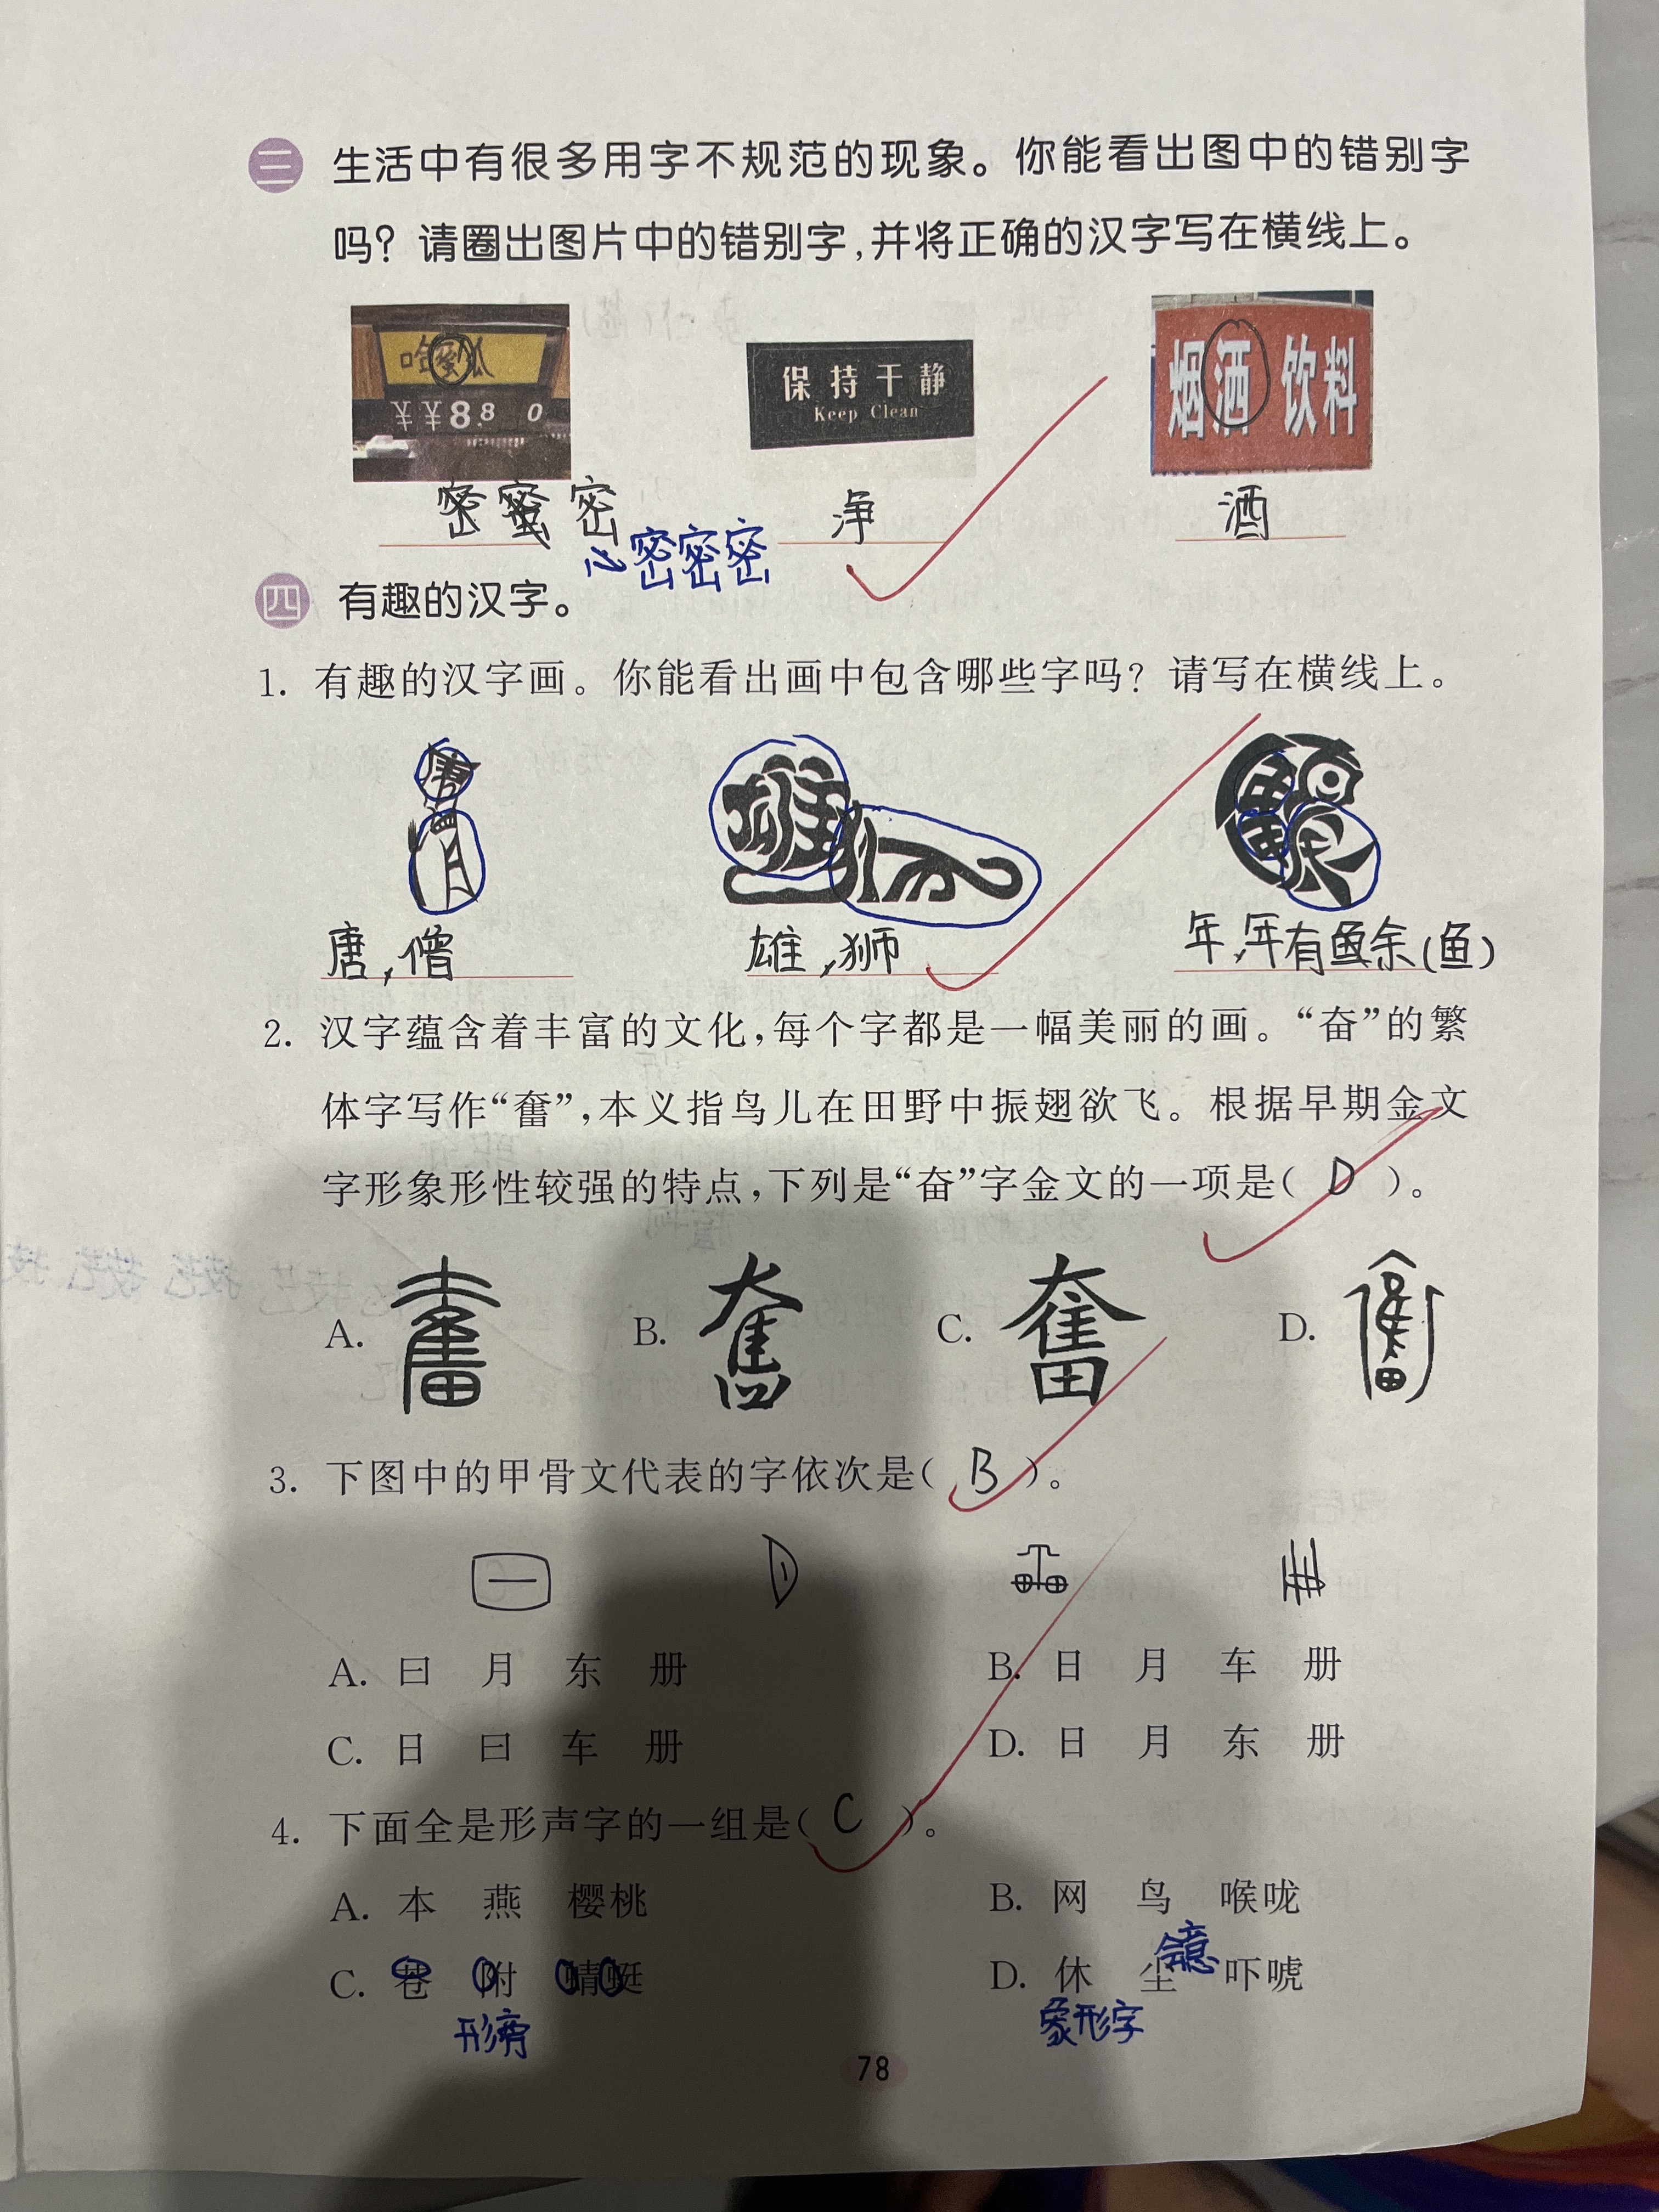 三 生活中有很多用字不规范的现象。你能看出图中的错别字
吗？请圈出图片中的错别字,并将正确的汉字写在横线上。
哈蜜瓜
¥¥88 0
保持干静
Keep Clean
烟洒 饮料
密 蜜 密
净
酒
心密密密
四 有趣的汉字。
1. 有趣的汉字画。你能看出画中包含哪些字吗？请写在横线上。
唐,僧
雄,狮
年,年有鱼余(鱼)
2. 汉字蕴含着丰富的文化,每个字都是一幅美丽的画。“奋”的繁
体字写作“奮”,本义指鸟儿在田野中振翅欲飞。根据早期金文
字形象形性较强的特点,下列是“奋”字金文的一项是( D )。
A. 奮 B. 奮 C. 奮 D.
3. 下图中的甲骨文代表的字依次是( B )。
A. 曰 月 东 册 B. 日 月 车 册
C. 日 曰 车 册 D. 日 月 东 册
4. 下面全是形声字的一组是( C )。
A. 本 燕 樱桃 B. 网 鸟 喉咙
C. 苍 附 蜻蜓 D. 休 尘 吓唬
会意
形旁
象形字
78